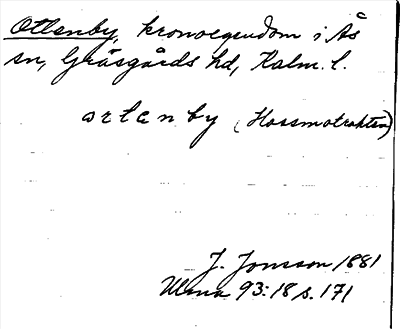 Ottenby, kronoegendom i Ås
sn, Gräsgårds hd, Kalm. l.
(Hossmotrakten)
J. Jonsson 1881
93:18 s. 171